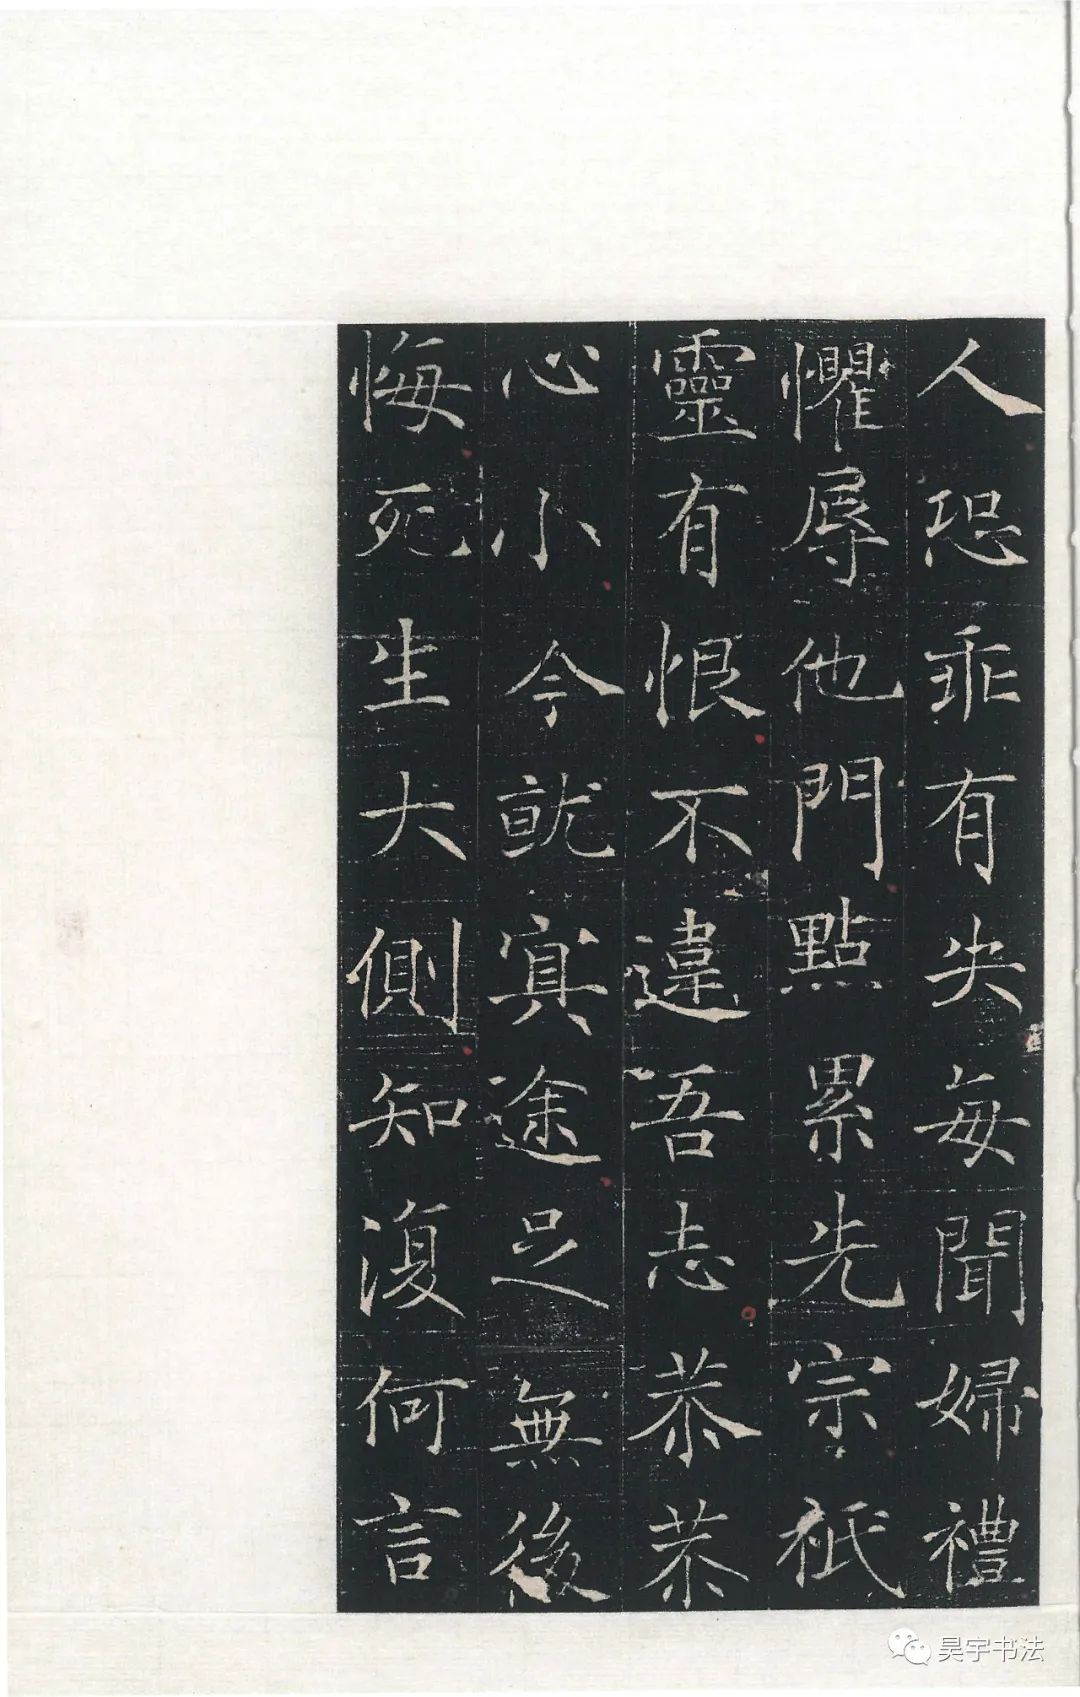 人恐乖有失每聞婦禮
懼辱他門點累先宗祇
靈有恨不違吾志恭恭
心小今就寘途足無後
悔死生大側知復何言
昊宇书法